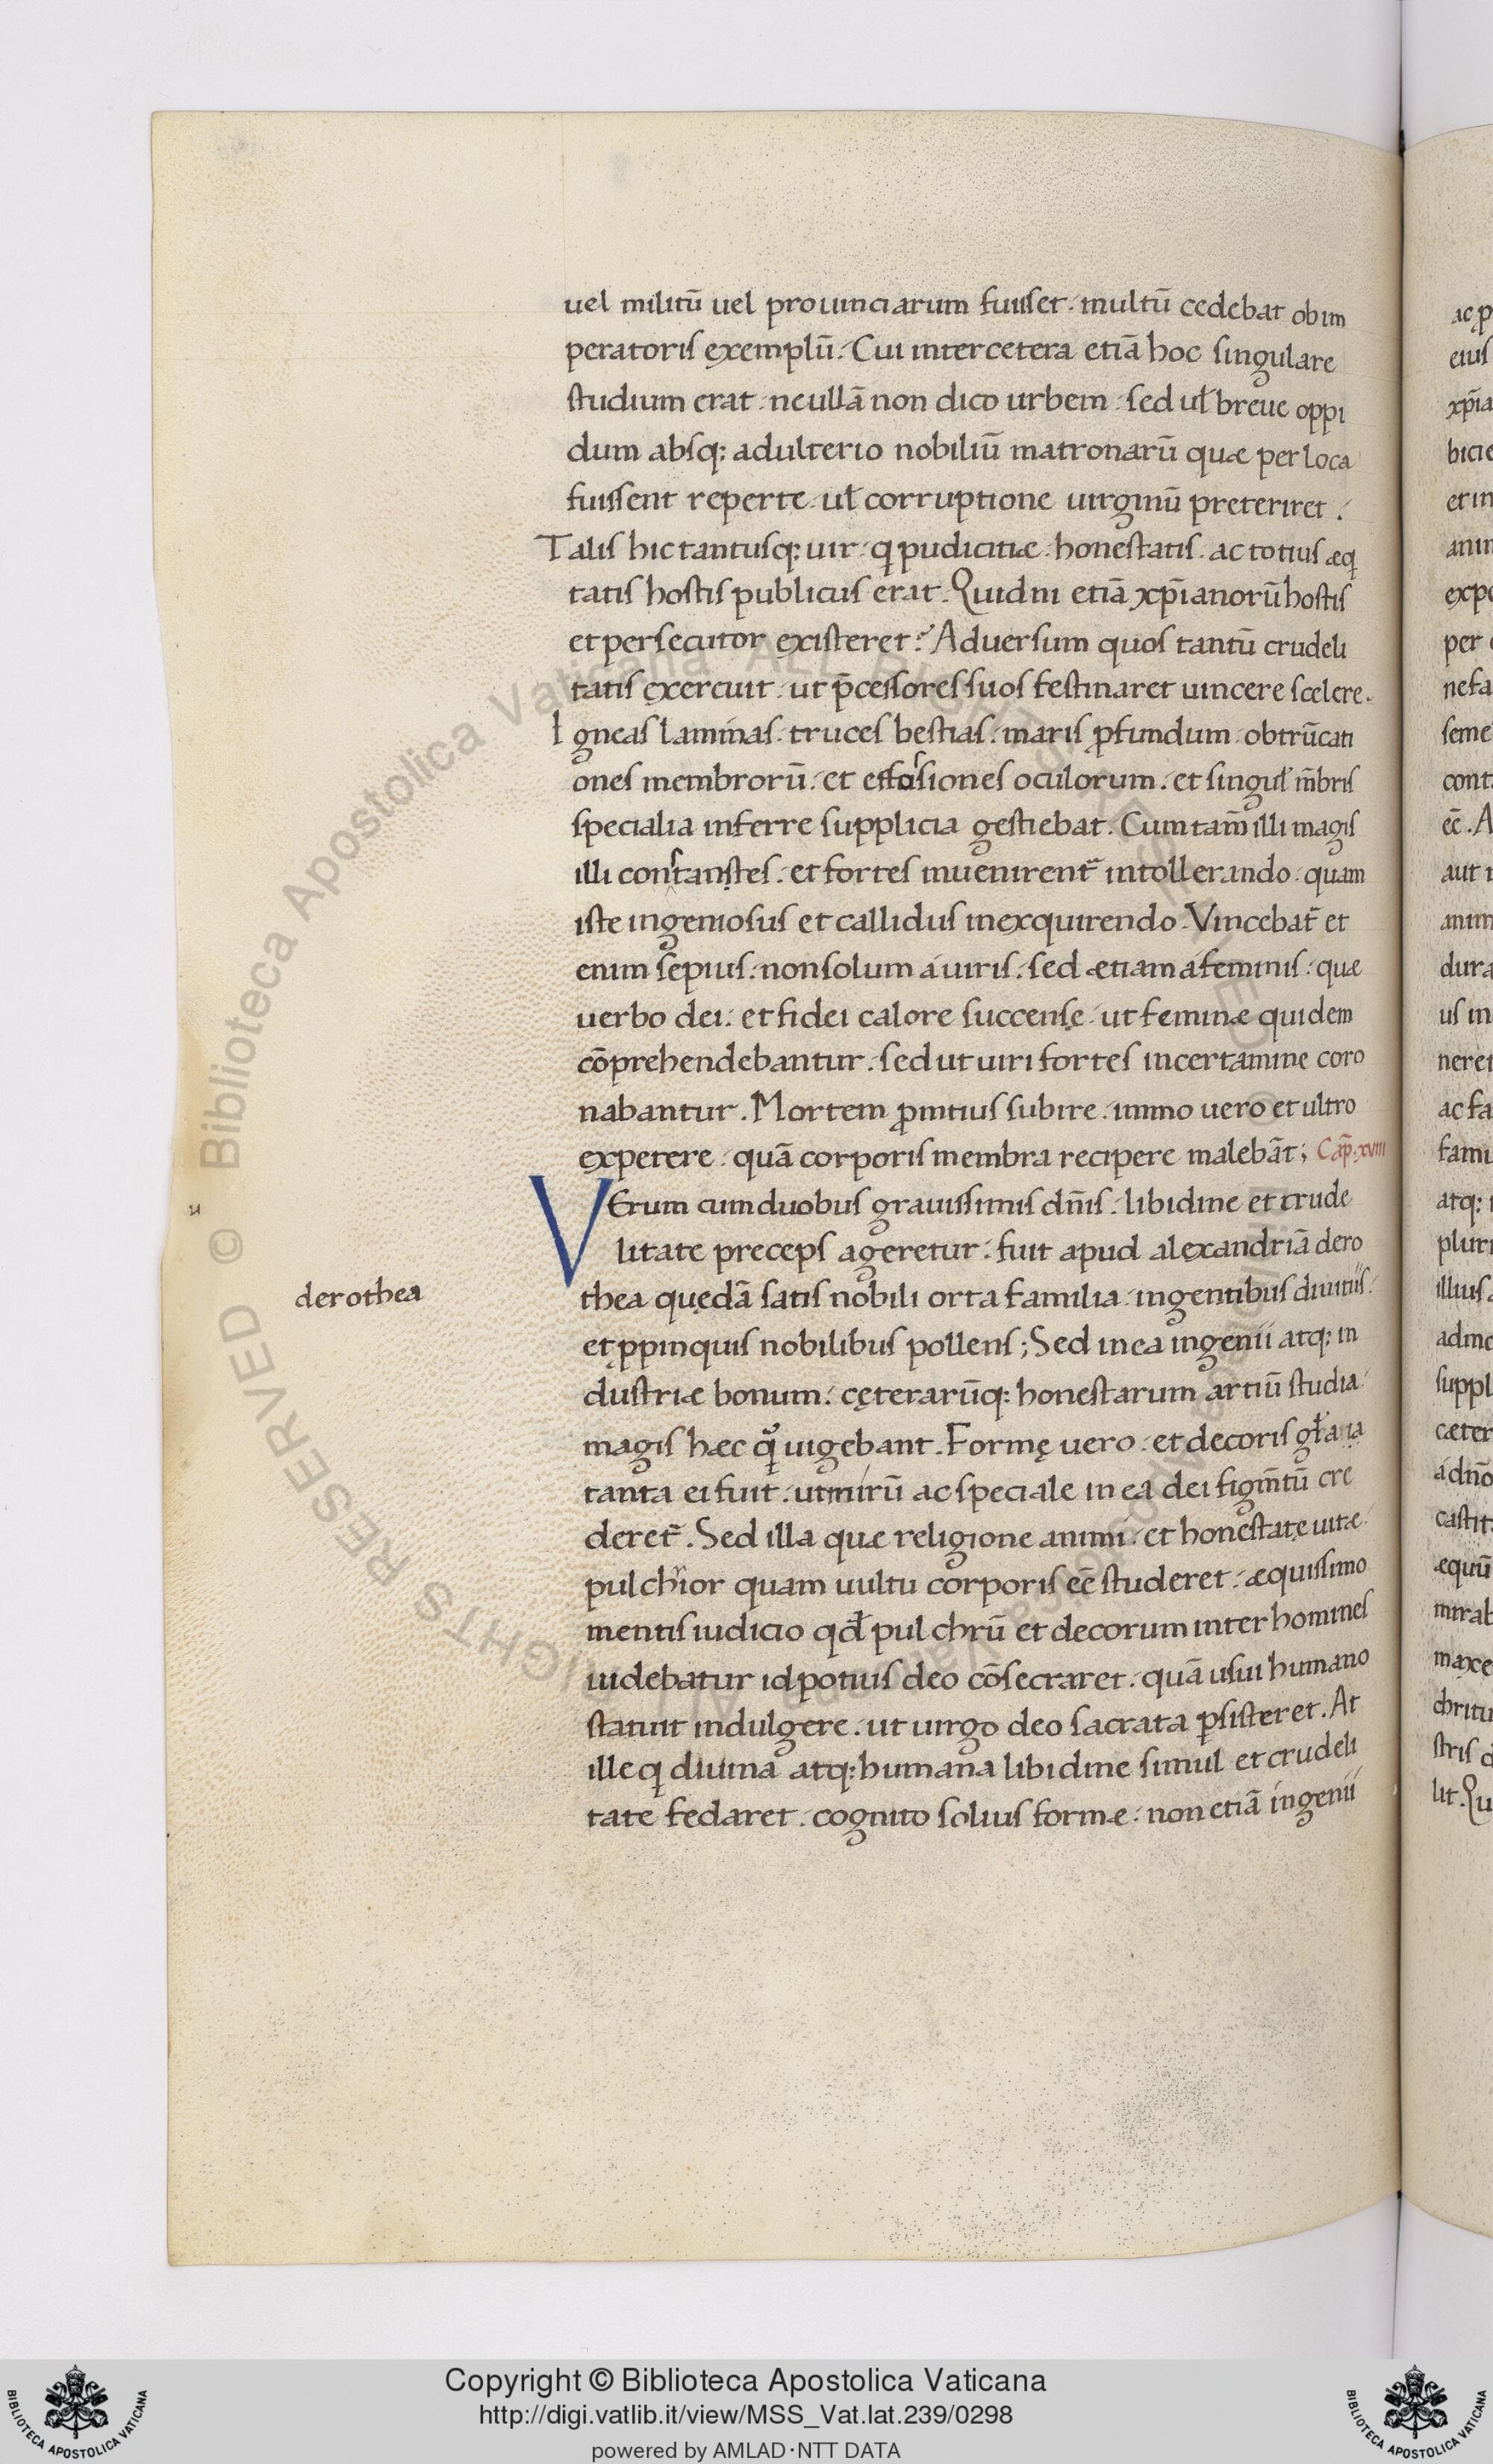 uel militū uel prouinciarum fuisset · multū cedebat ob im
peratoris exemplū · Cui inter cetera etiā hoc singulare
studium erat · ne ullā non dico urbem · sed ul̄ breue oppi
dum absq; adulterio nobiliū matronarū quæ per loca
fuissent reperte · ul̄ corruptione uirginū preteriret .
Talis hic tantusq; uir · q pudicitiæ · honestatis · ac totius æq
tatis hostis publicus erat . Quidni etiā xp̄ianorū hostis
et persecutor existeret ? Aduersum quos tantū crudeli
tatis exercuit · ut p̄cessores suos festinaret uincere scelere .
Igneas laminas · truces bestias · maris ꝓfundum · obtrūcati
ones membrorū · et effossiones oculorum . et singul̄ m̄bris
specialia inferre supplicia gestiebat . Cum tam̄ illi magis
illi constanstes · et fortes inuenirent̄ in tollerando · quam
iste ingeniosus et callidus in exquirendo . Vincebat̄ et
enim sępius · non solum á uiris · sed ætiam á feminis · quæ
uerbo dei · et fidei calore succensę · ut feminæ quidem
cōprehendebantur · sed ut uiri fortes in certamine coro
nabantur . Mortem ꝓmtius subire · immo uero et ultro
expetere · quā corporis membra recipere malebāt ; Cap̄ . xviii
VErum cum duobus grauissimis dn̄is · libidine et crude
litate preceps ageretur · fuit apud alexandriā dero
derothea
thea quędā satis nobili orta familia · ingentibus diuitiis ·
et ꝓpinquis nobilibus pollens ; Sed in ea ingenii atq; in
dustriæ bonum · cęterarūq; honestarum artiū studia ·
magis hæc q uigebant . Formę uero · et decoris
tanta ei fuit · ut mirū ac speciale in ea dei figm̄tū cre
deret̄ . Sed illa quæ religione animi · et honestate uitæ ·
pulchrior quam uultu corporis ec̄ studeret · æquissimo
mentis iudicio qd̄ pulchrū et decorum inter homines
uidebatur id potius deo cōsecraret · quā usui humano
statuit indulgere · ut uirgo deo sacrata ꝑsisteret . At
ille q diuina atq; humana libidine simul et crudeli
tate fedaret · cognito solius formæ · non etiā ingenii
Copyright © Biblioteca Apostolica Vaticana
http://digi.vatlib.it/view/MSS_Vat.lat.239/0298
powered by AMLAD·NTT DATA